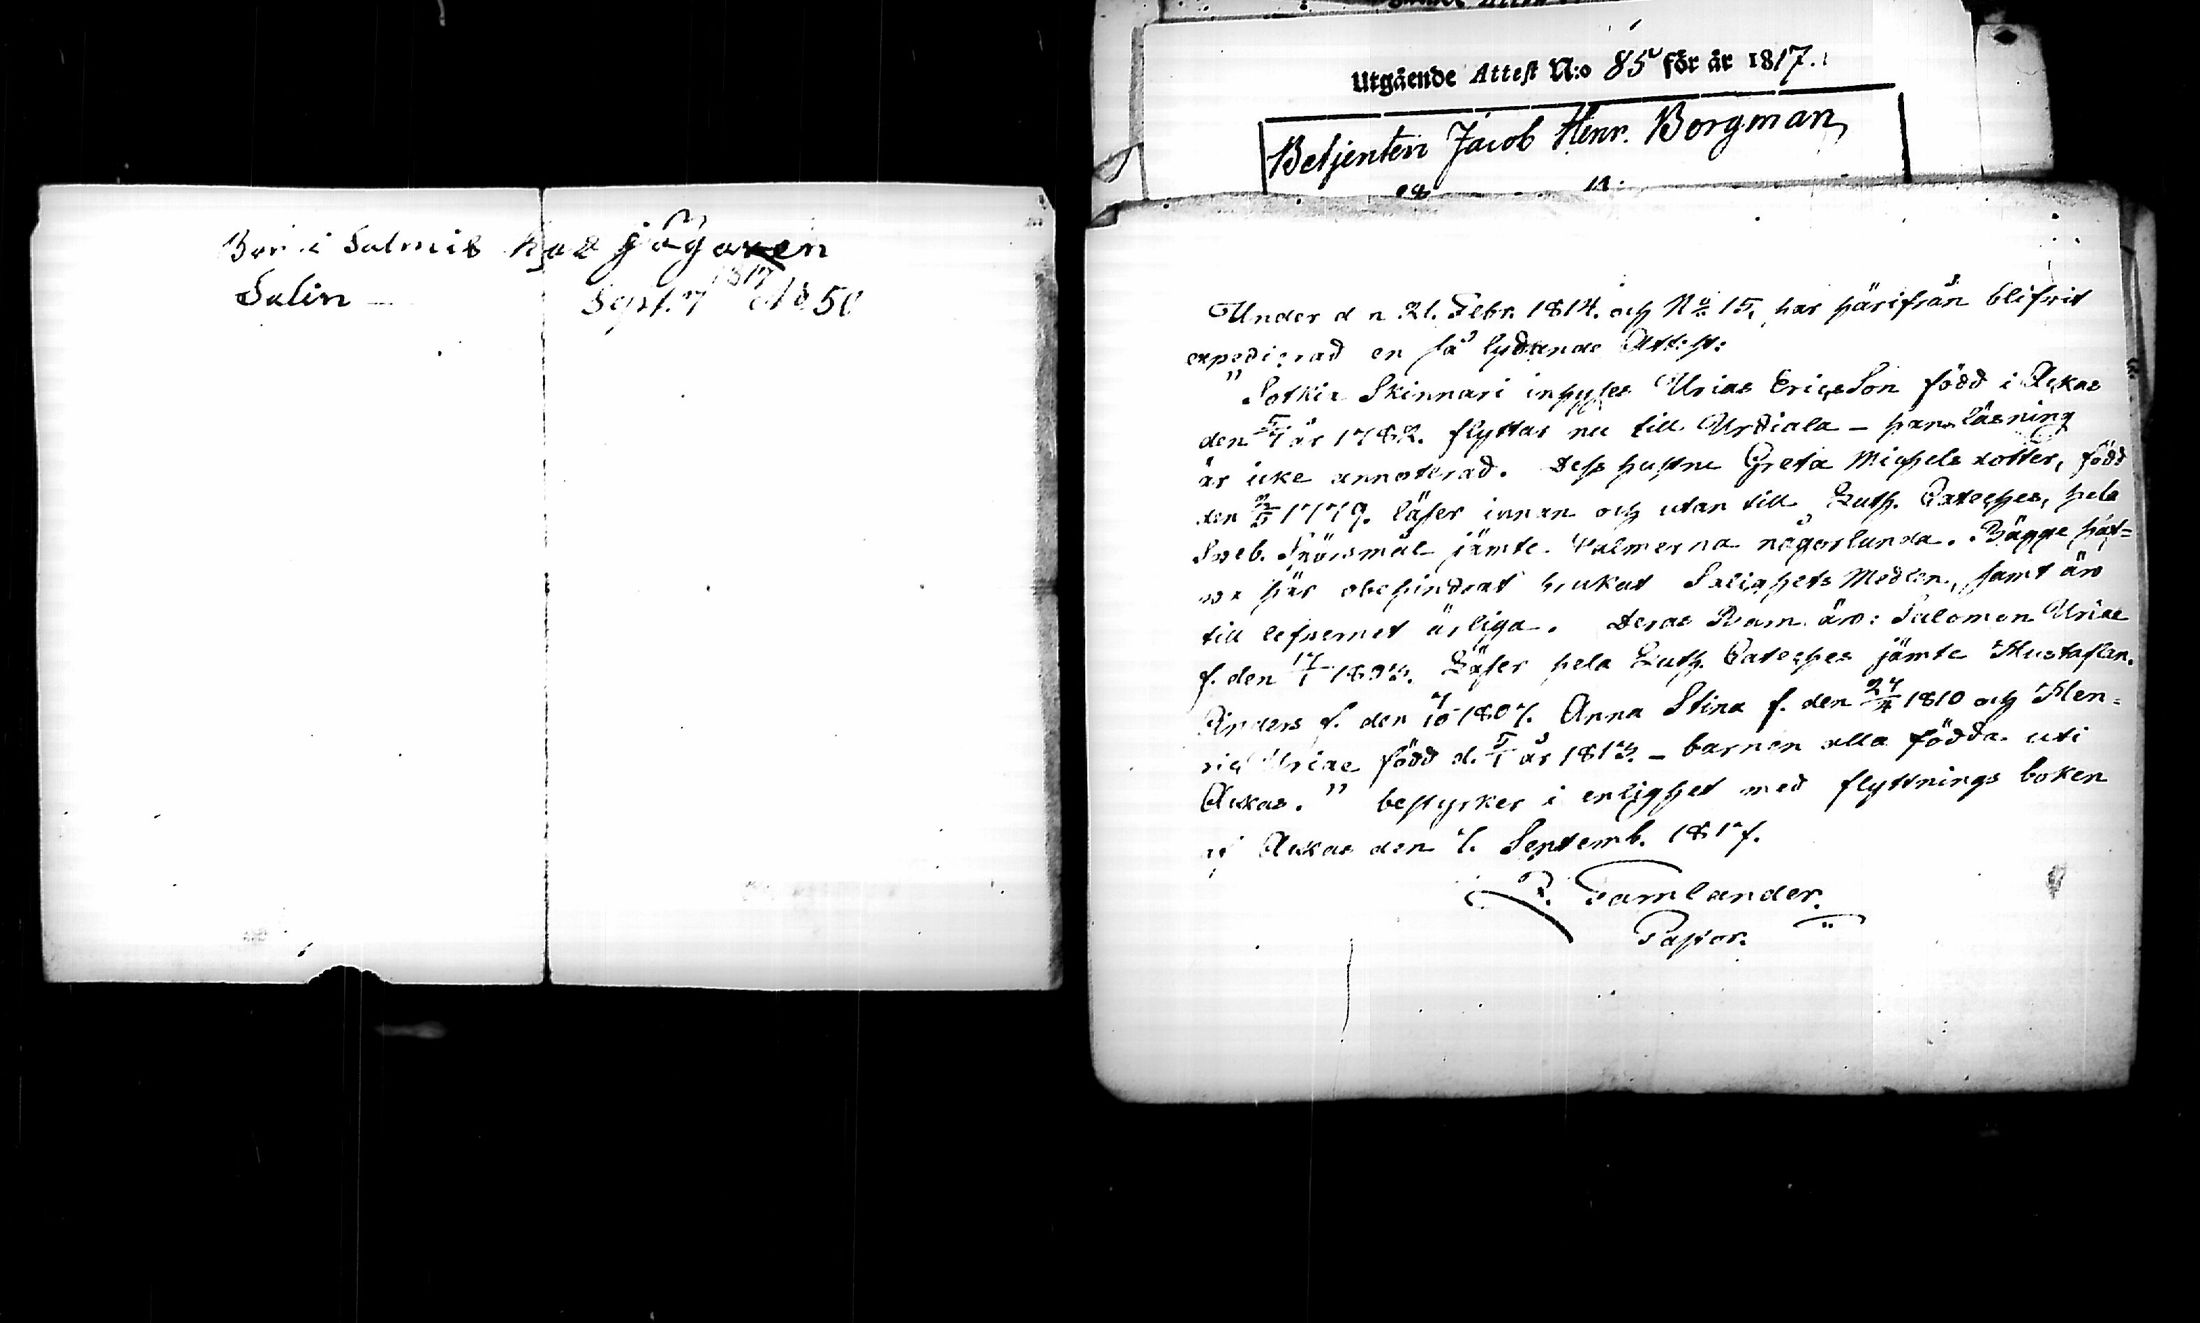 Bor i Salmis hos jägaren
Salin —
Sept. 7 1817 N:o 50
Utgående Attest N:o 85 för år 1817.
Betjenten Jacob Henr. Borgman,
Under d n 21. Febr. 1814. och No. 15, har härifrån blifvit
expedierad en så lydande Attest:
"Sotkia Skinnari inhyses Urias Ericsson född i Ackas
den 5/4 år 1782. flyttar nu till Urdiala – hans läsning
är icke annoterad. Dess hustru Greta Michelsdotter, född
den 1779. läser innan och utan till Luth. Cateches, hela
Sveb. Spörsmål jämte Psalmerna någorlunda. Bägge haf-
va här obehindrat brukat Salighets Medlen, samt äro
till lefvernet ärliga. Deras Barn äro: Salomon Uriae
f. den 17/1 1803. Läser hela Luth. Cateches jämte Hustaflan.
Anders f. den 7/10 1807. Anna Stina f. den 24/4 1810 och Hen-
ric Uriae född d. 5/1 år 1813. – barnen alla födda uti
Ackas." bestyrker i enlighet med flyttnings boken
af Ackas den 7. Septemb. 1817.
Tamlander.
Pastor.